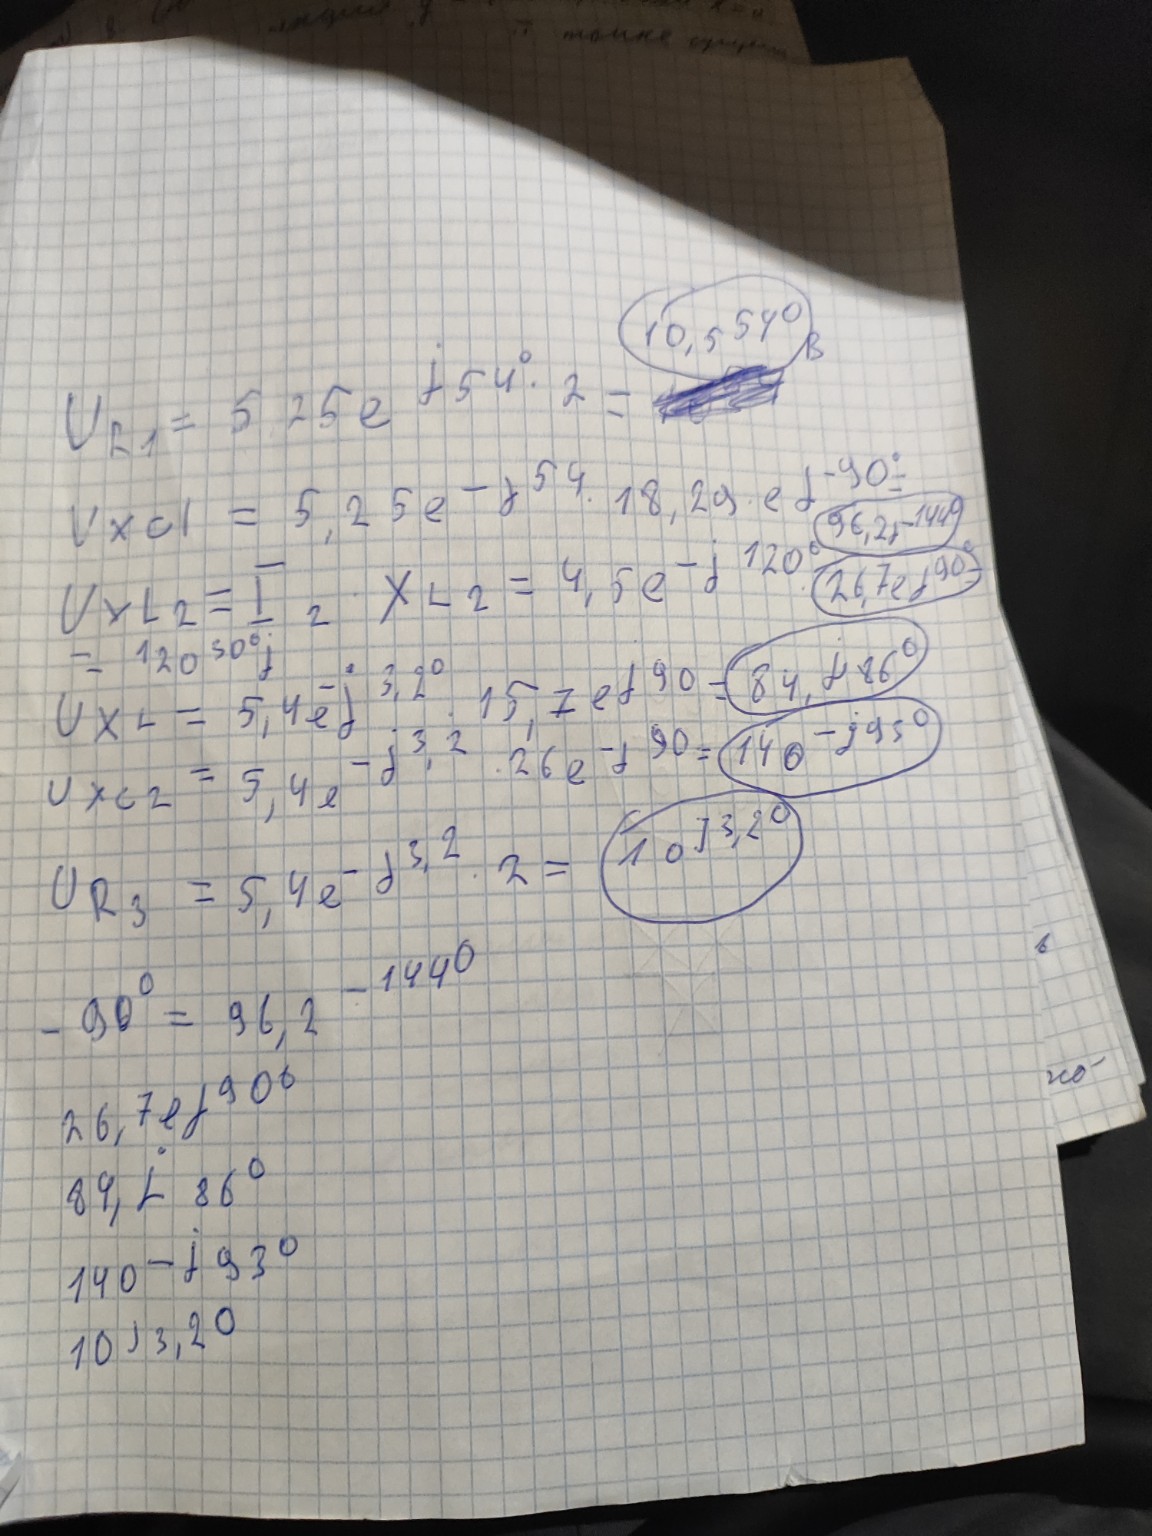 точке
10,5 54° В
U R1 = 5 25e j54° · 2 =
U xc1 = 5,25e -j54 · 18,29 · e j-90° =
96,2j-144°
U xL2 = I 2 · XL2 = 4,5e -j 120° · 26,7e j90° =
= 120 30°j
U XL = 5,4e -j 3,2° · 15,7e j90 = 84,j 86°
U xc2 = 5,4e -j3,2 · 26e -j90 = 140 -j93°
U R3 = 5,4e -j3,2 · 2 = 10 j3,2°
-90° = 96,2 -144°
26,7e j90°
84,j 86°
140 -j93°
10 j3,2°